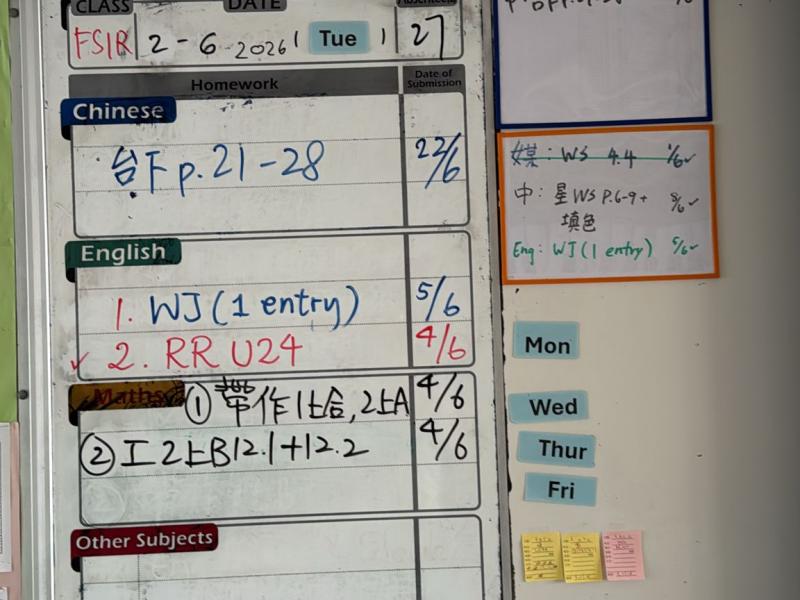 CLASS DATE
FSIR 2-6-2026 ( Tue ) 27
Homework Date of Submission
Chinese
台下 p.21-28 22/6
English
1. WJ (1 entry) 5/6
2. RR U24 4/6
Maths ① 帶作1上合,2上A 4/6
② 工2上B12.1+12.2 4/6
Other Subjects
WS 4.4 1/6✓
中: 星WS P.6-9+ 8/6✓
填色
Eng: WJ (1 entry) 5/6✓
Mon
Wed
Thur
Fri